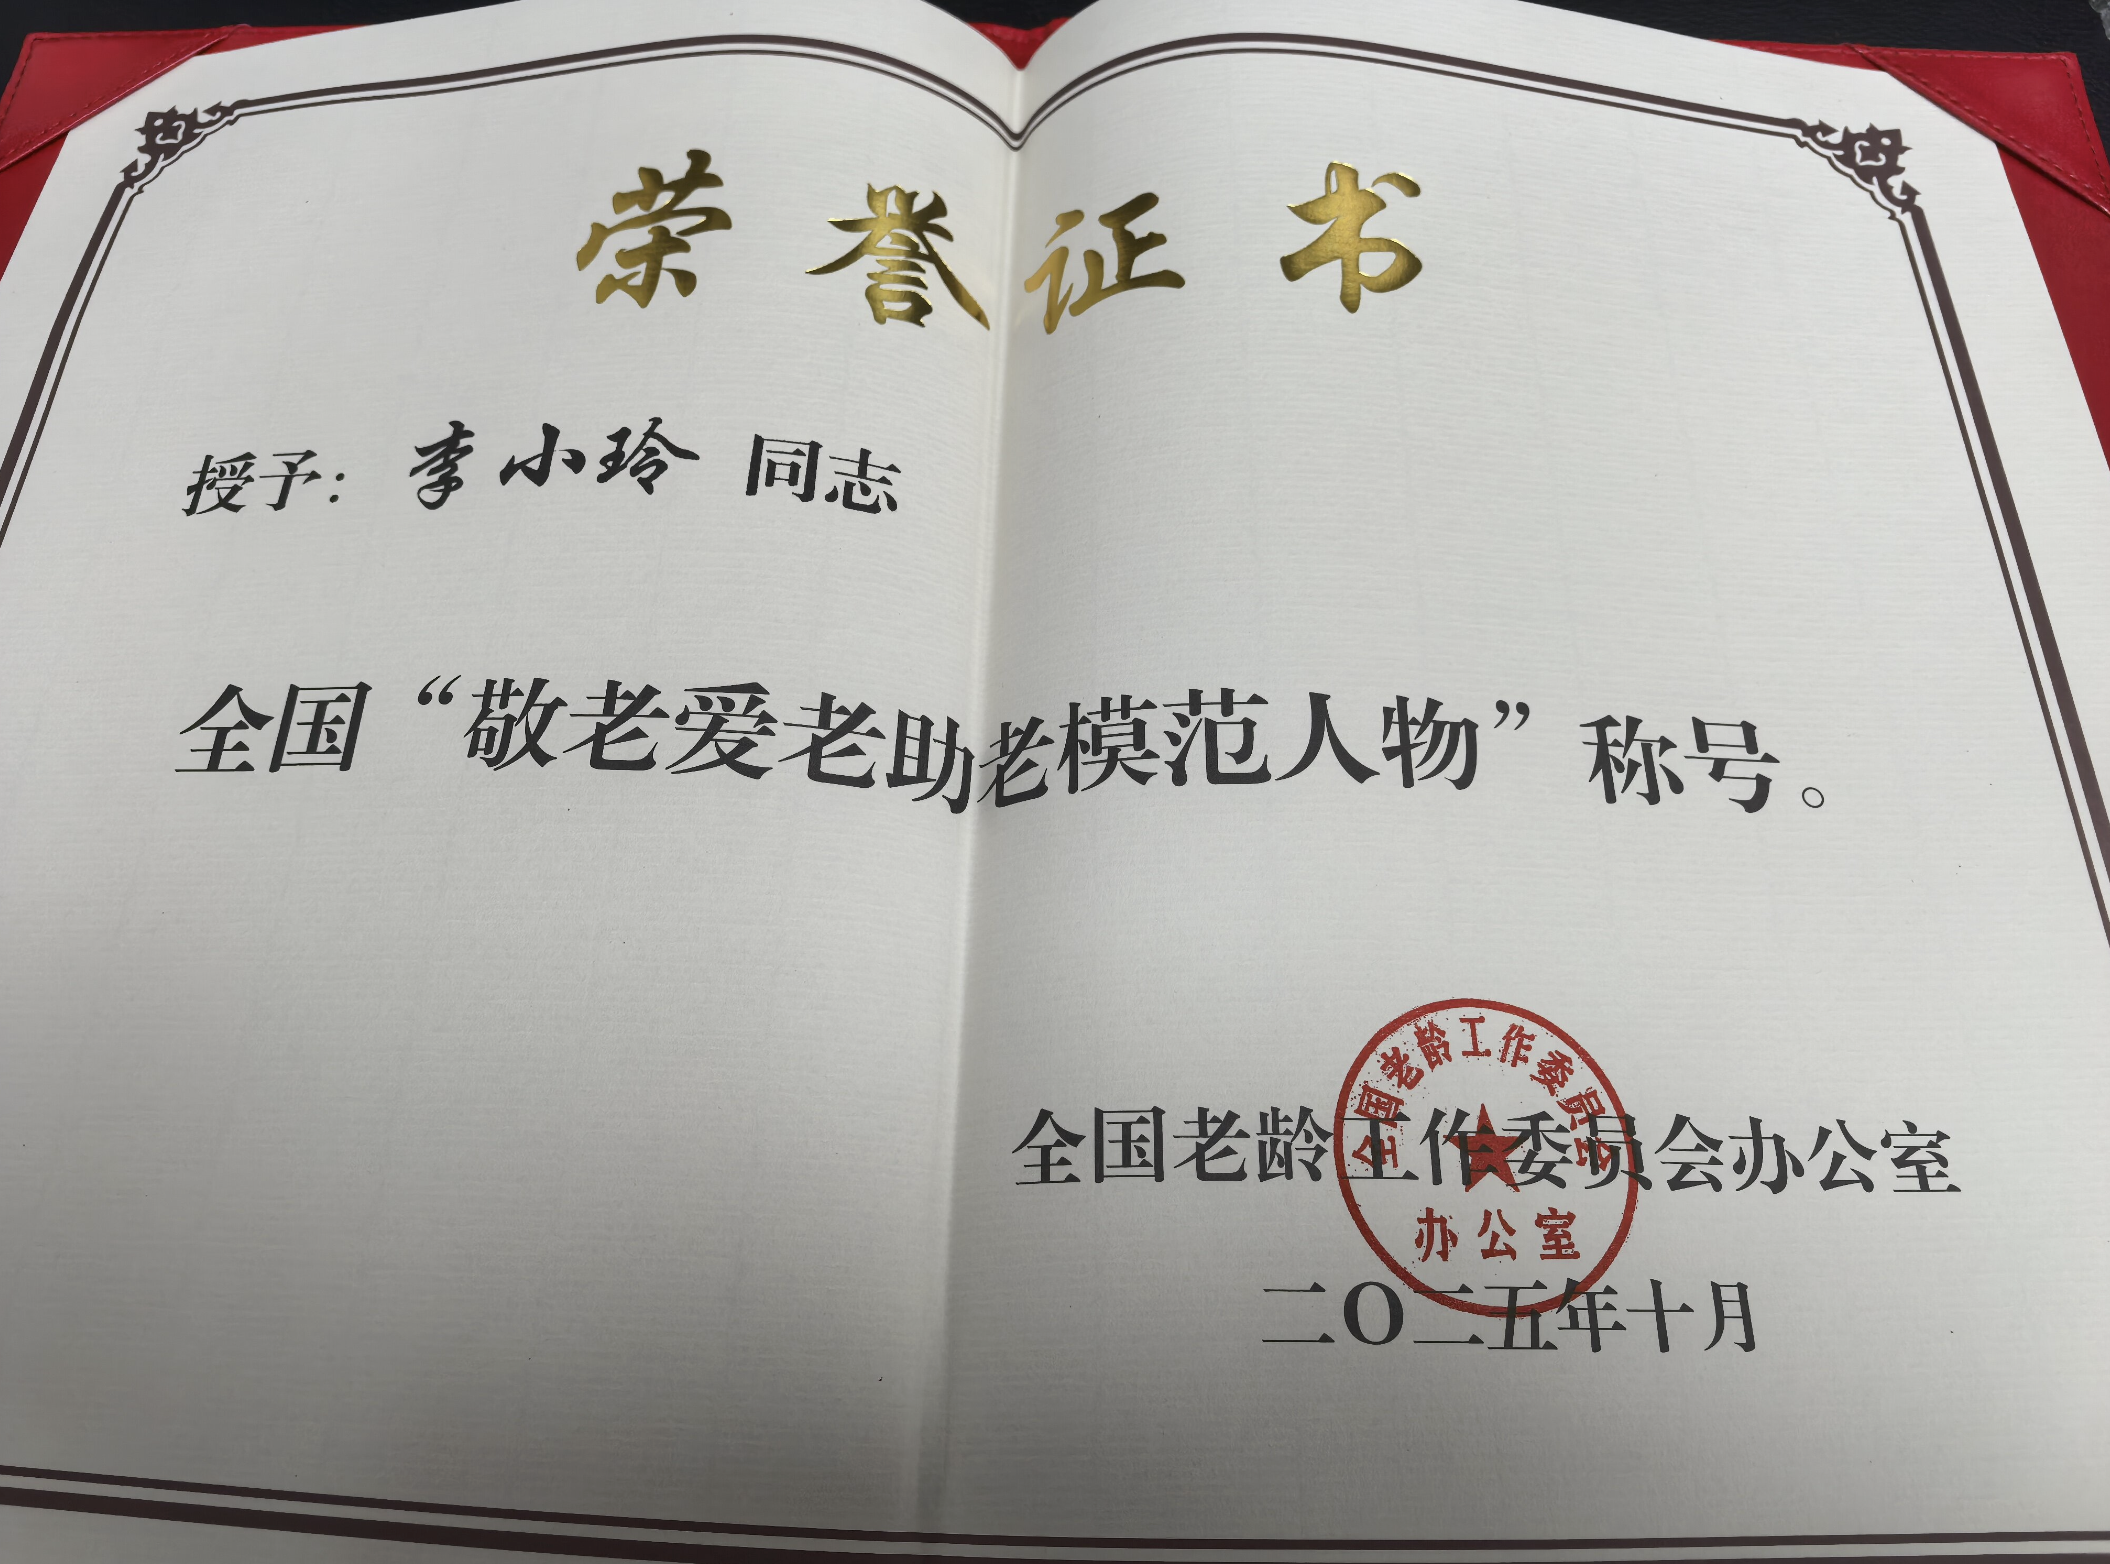 荣誉证书
授予：李小玲 同志
全国“敬老爱老助老模范人物”称号。
全国老龄工作委员会
办公室
全国老龄工作委员会办公室
二〇二五年十月